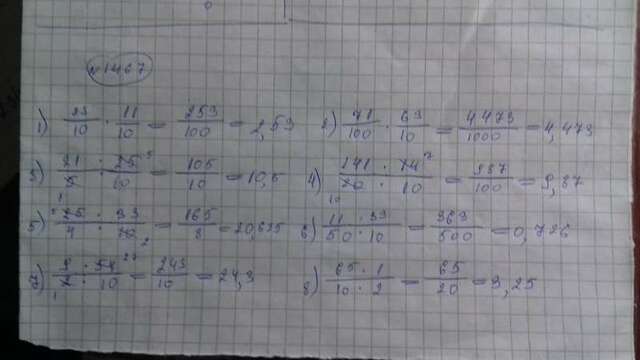 №1467
1) 23/10 · 11/10 = 253/100 = 2,53   2) 71/100 · 63/10 = 4473/1000 = 4,473
3) 21/5 · 25 5/10 = 105/10 = 10,5   4) 141/20 10 · 14 7/10 = 987/100 = 9,87
5) 5 25/4 · 33/10 2 = 165/8 = 20,625   6) 11/50 · 33/10 = 363/500 = 0,726
7) 9/2 1 · 54 27/10 = 243/10 = 24,3   8) 65/10 · 1/2 = 65/20 = 3,25